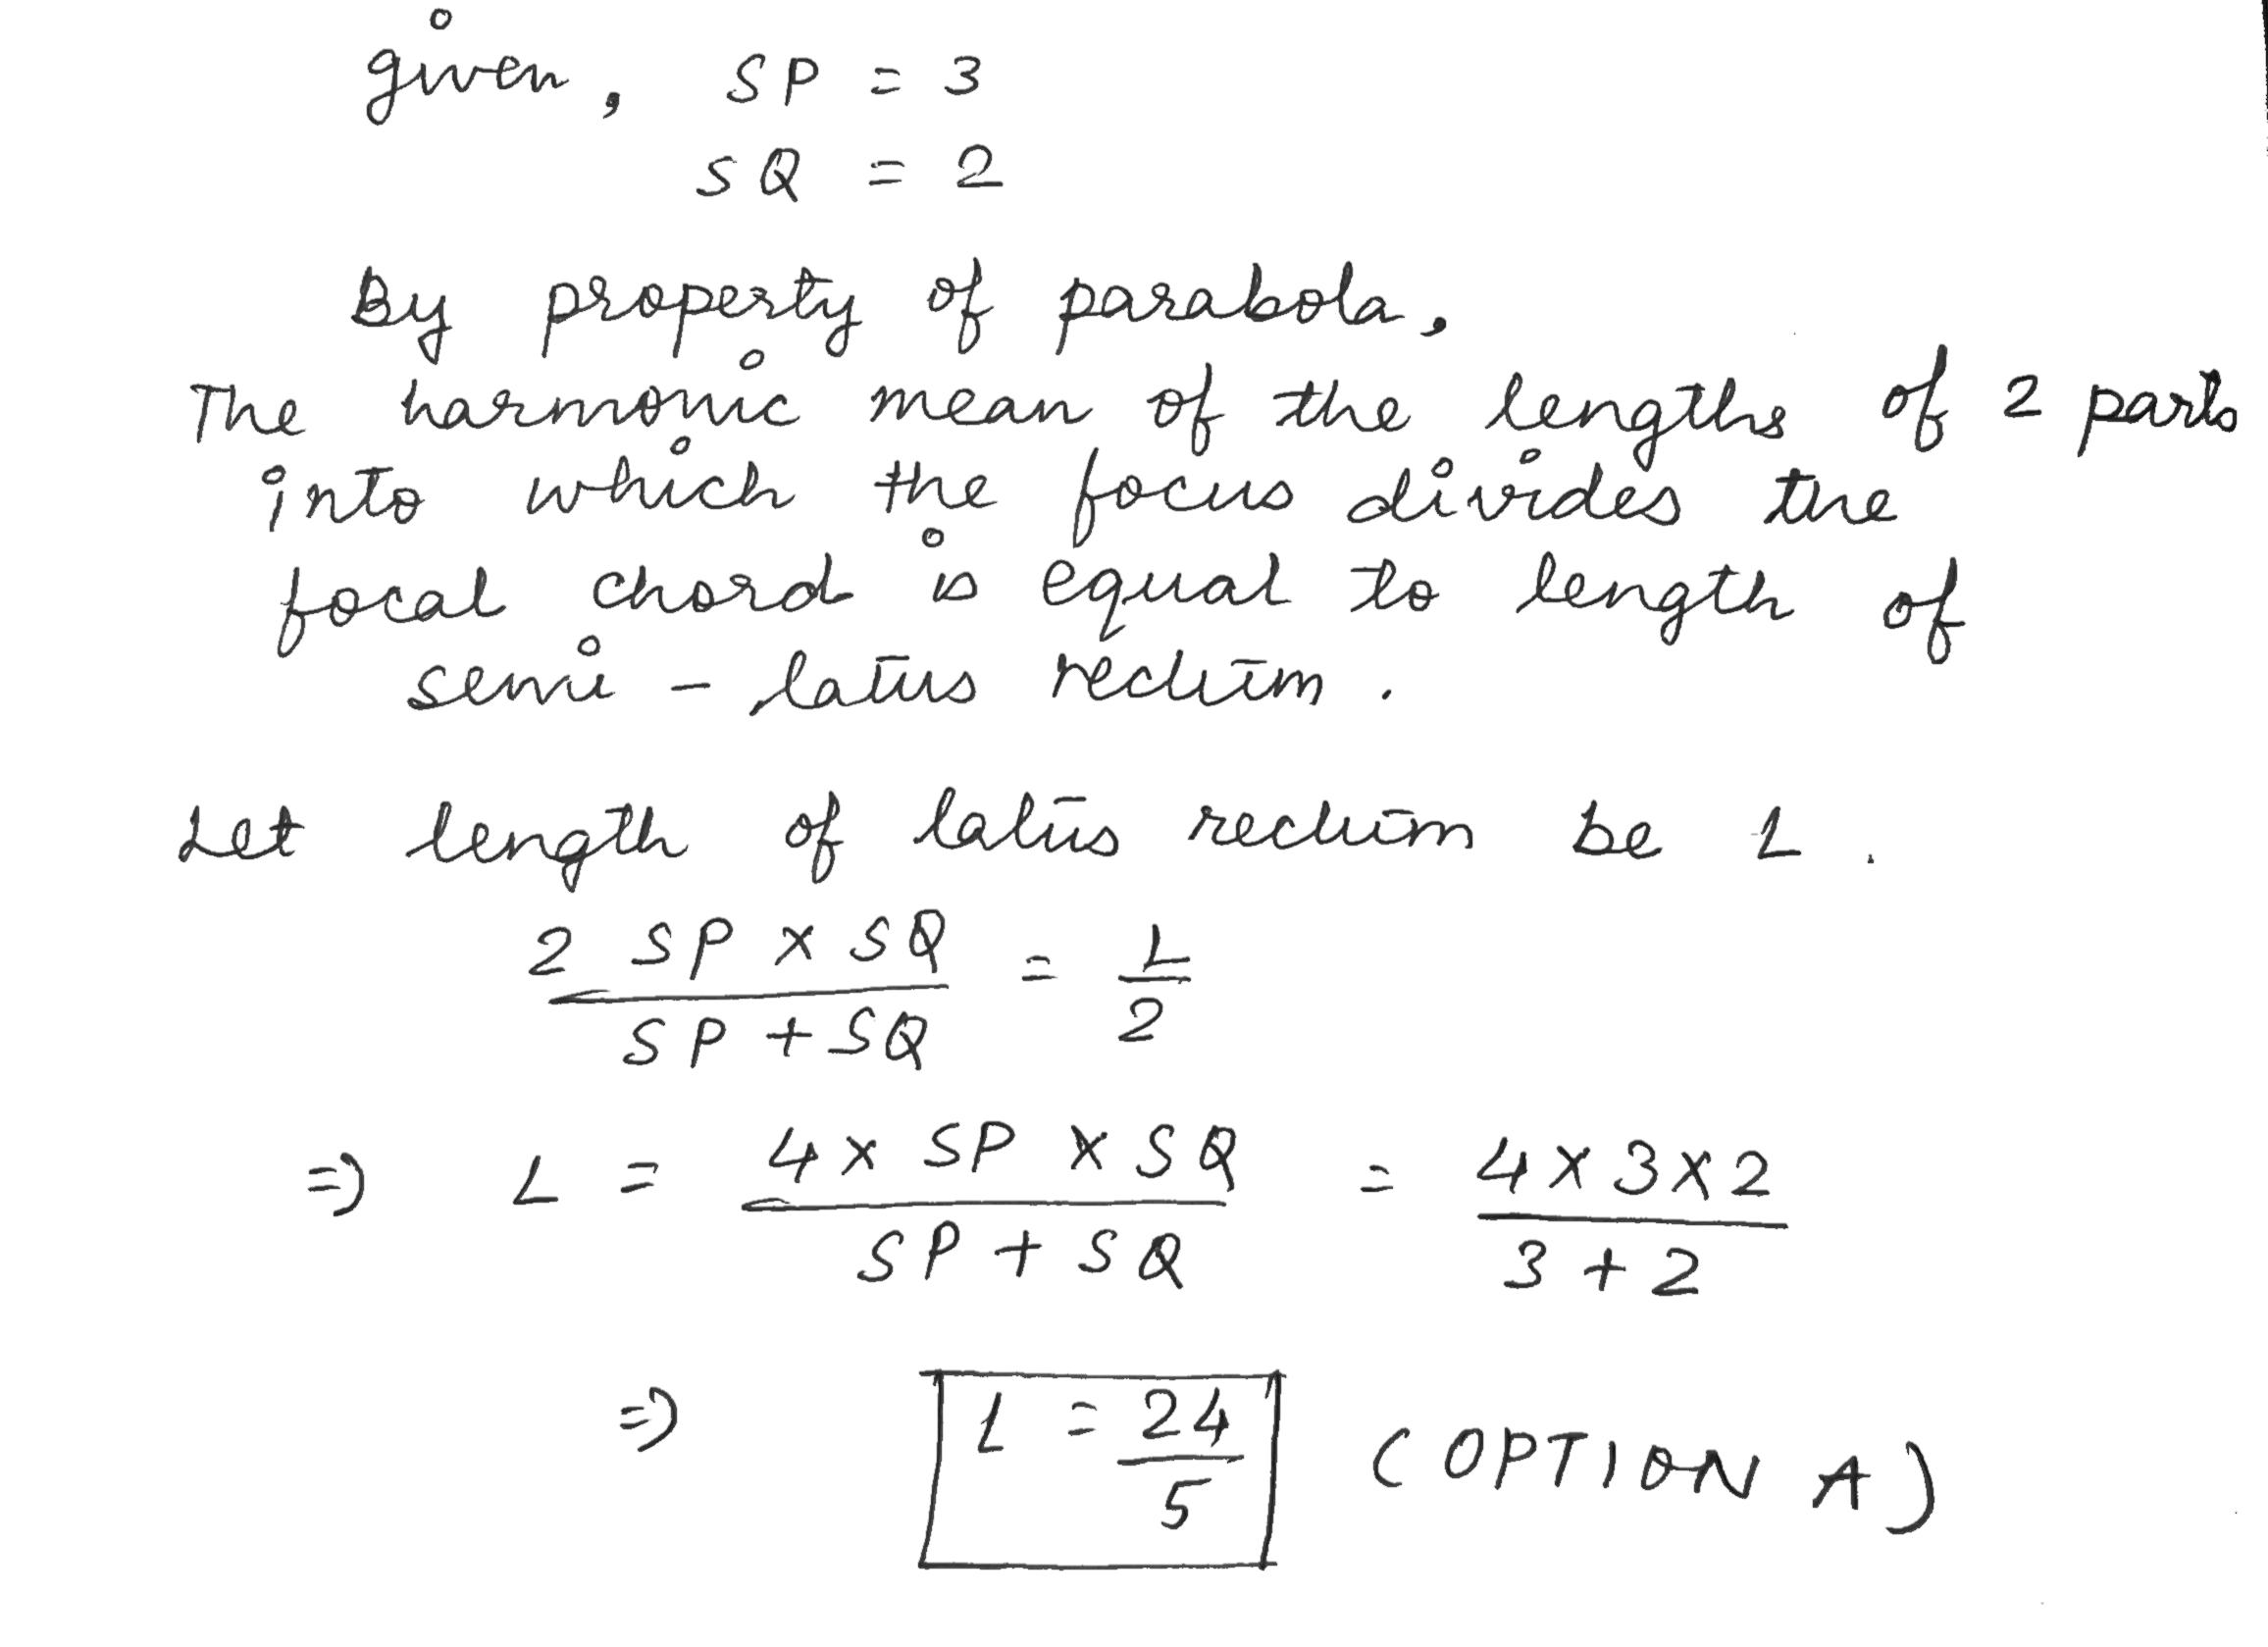 given, SP = 3
SQ = 2
By property of parabola,
The harmonic mean of the lengths of 2 parts
into which the focus divides the
focal chord is equal to length of
semi - latus rectum.
Let length of latus rectum be L.
2 SP × SQ / SP + SQ = L / 2
⇒ L = 4 × SP × SQ / SP + SQ = 4 × 3 × 2 / 3 + 2
⇒ L = 24 / 5 (OPTION A)